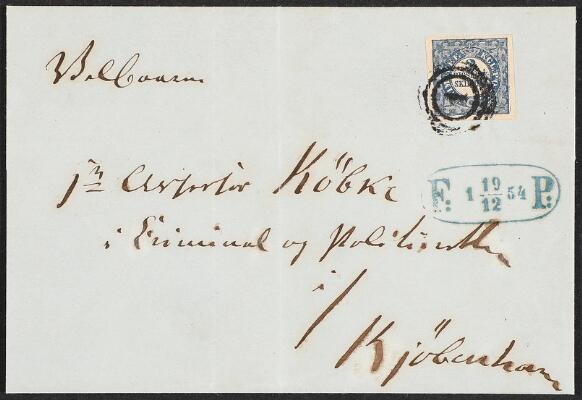 Velbaarne
Hr Assessor Köbke
i Criminal og Politiretten
i
Kjöbenhavn
1
F: 1 19/12 54 P: